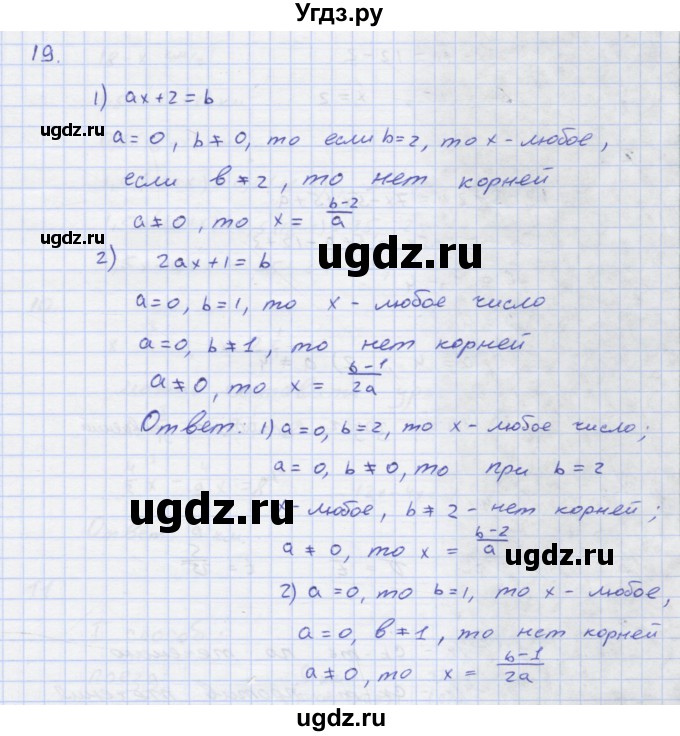 Угдз.ру
19.
1) ax+2=b
ugdz.ru
a=0, b≠0, то если b=2, то x-любое,
если в≠2, то нет корней
a≠0, то x = (b-2)/a
ugdz.ru
ugdz.ru
2) 2ax+1=b
a=0, b=1, то x-любое число
a=0, b≠1, то нет корней
a≠0, то x = (b-1)/2a
Ответ: 1) a=0, b=2, то x-любое число;
a=0, b≠0, то при b=2
ugdz.ru
x-любое, b≠2-нет корней;
a≠0, то x = (b-2)/a
ugdz.ru
2) a=0, то b=1, то x-любое,
a=0, в≠1, то нет корней
ugdz.ru
a≠0, то x = (b-1)/2a
ugdz.ru